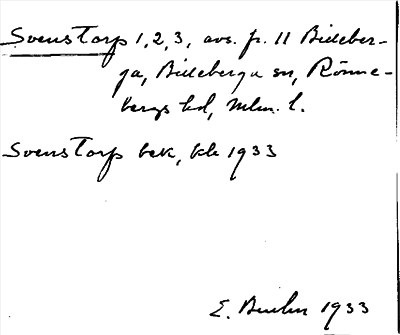 Svenstorp 1, 2, 3, avs. fr. 11 Billeber-
ga, Billeberga sn, Rönne-
bergs hd, Mlm. l.
Svenstorp bek, kb 1933
E. 1933